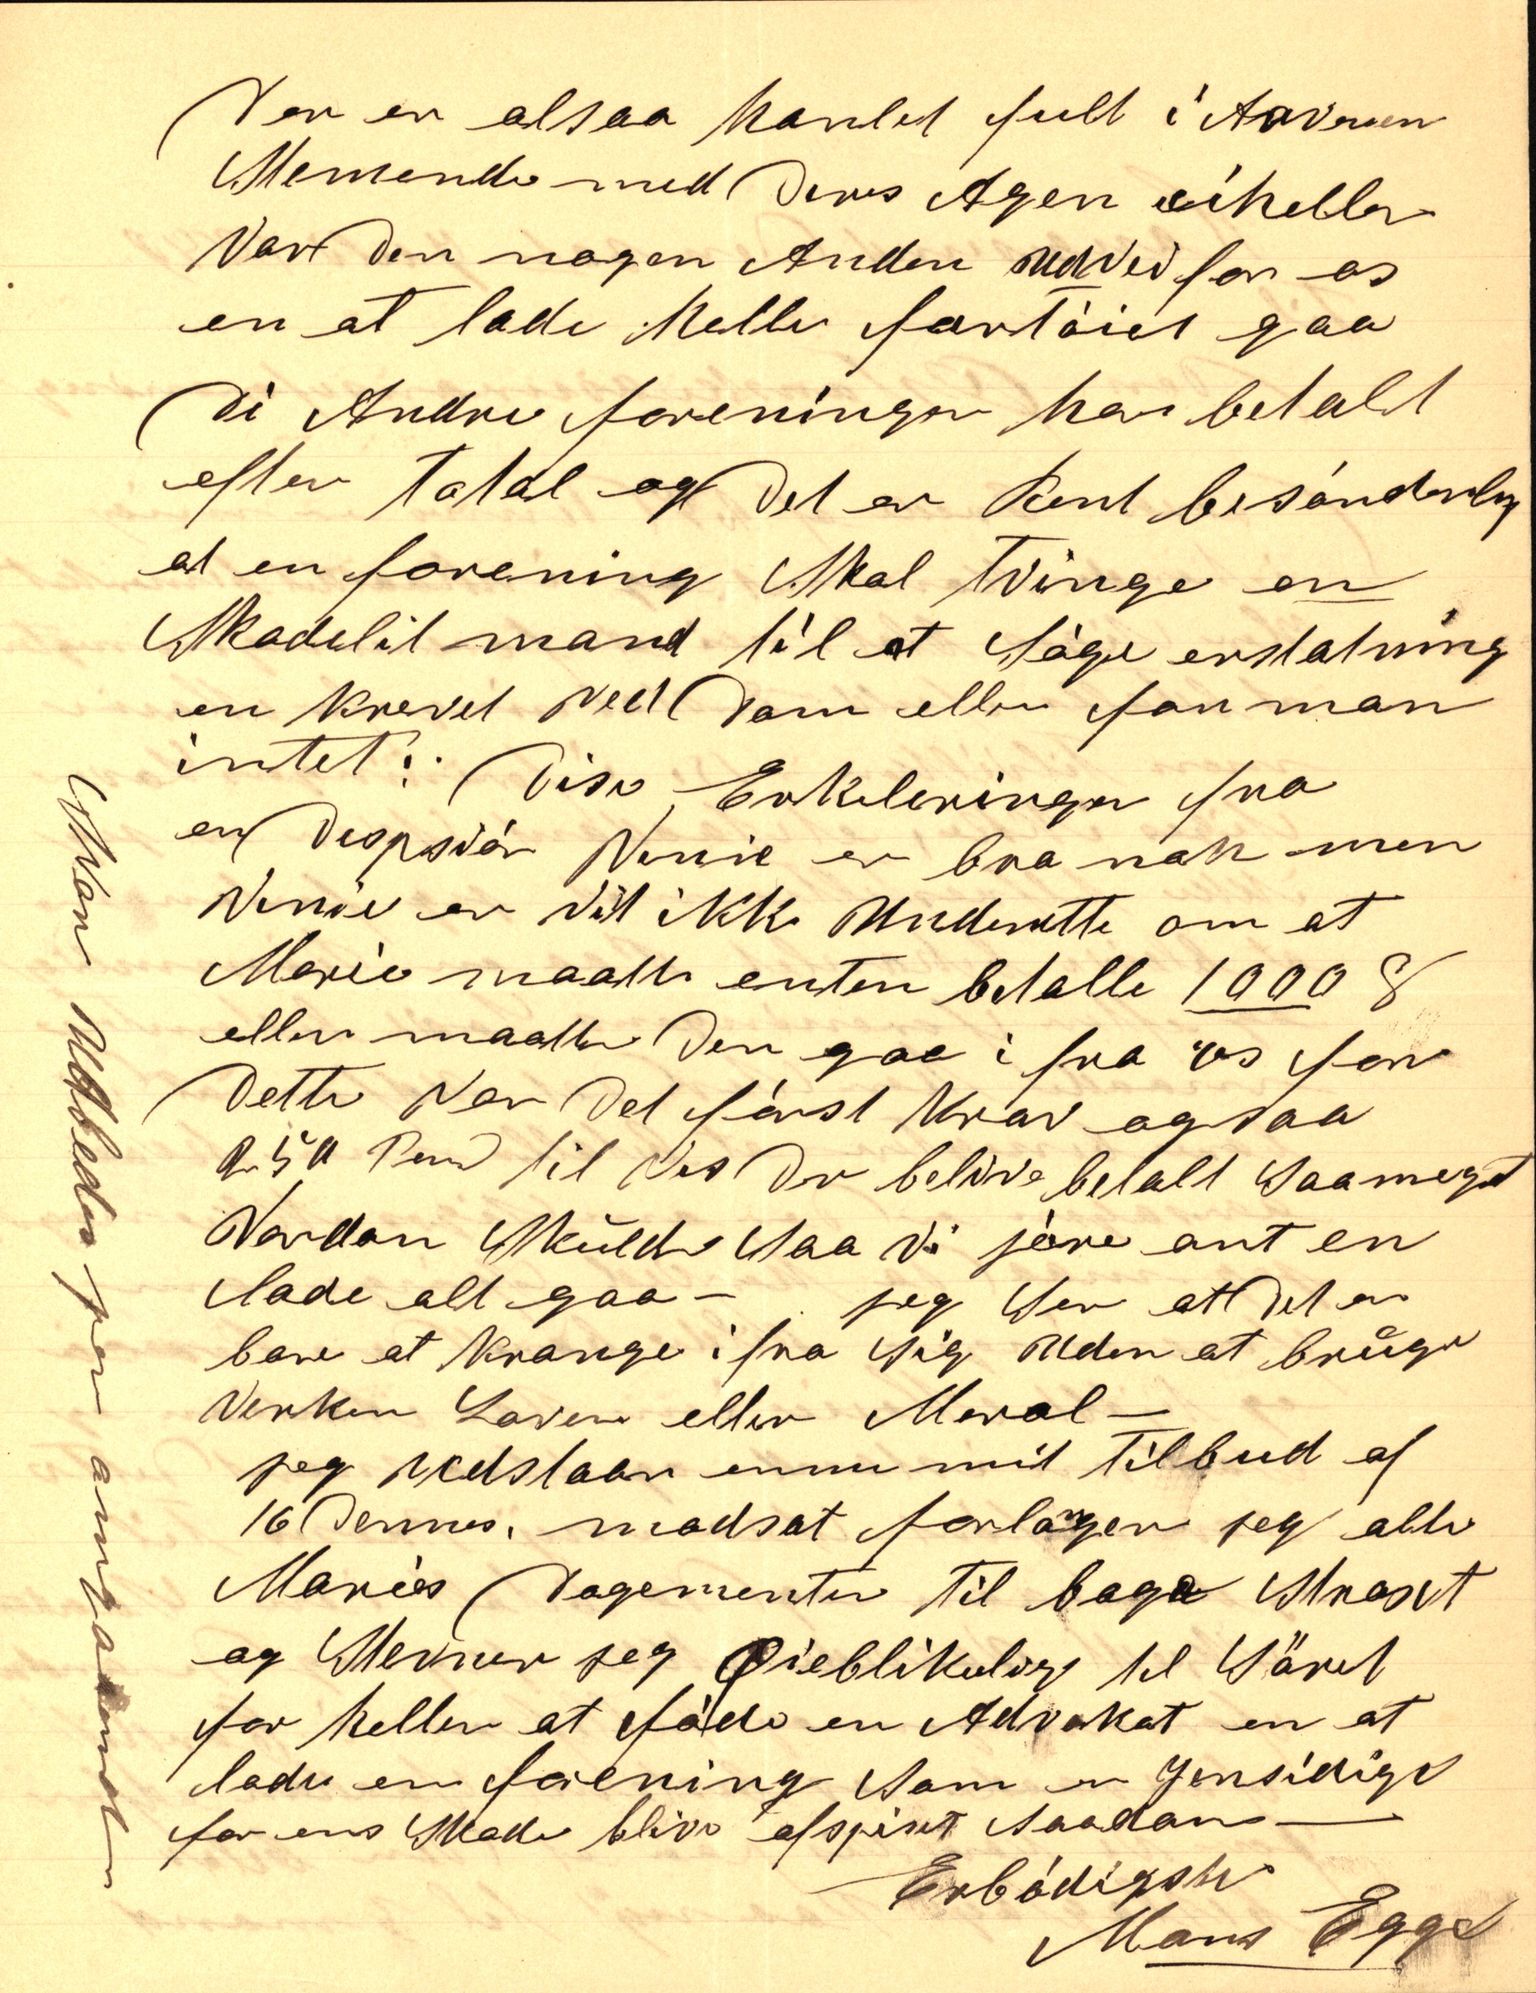 Der er altsaa handlet fult i
Stemende med Deres Agen eiheller
Var der nogen Anden Udvei for os
en at lade helle fartöiet gaa
Di Andre foreninger har betalt
efter Total og Det er Rent besönderlig
at en forening Skal tvinge en
Skadelit mand til at Söge erstatning
en krevet ved Dom eller faar man
intet!. Disse Erkleringer fra
en Despsjör Venie er bra nok men
Venie er vist ikke Underrette om at
Marie maatte enten betalle 1000 £
eller maatte Den gaa i fra os for
Dette Var Det först Krav ogsaa
250 Pund til Vis Der belive betalt Saameget
Vordan Skulde Saa Vi jöre ant en
lade alt gaa – jeg Ser at Det er
bare at krange ifra Sig Uden at brúge
Verken Loven eller Moral –
jeg Vedstaar ennu mit Tilbud af
16 Dennes. modsat forlanger jeg alle
Maries Dogementer til bage Strast
og Stevner jeg Öieblikelig til
for heller at föde en Advokat en at
lade en forening Som er Gensidige
for ens Skade blive afspist Saadan –
Erbödigst
Hans Egge
Svar Udbedes per omgaaende